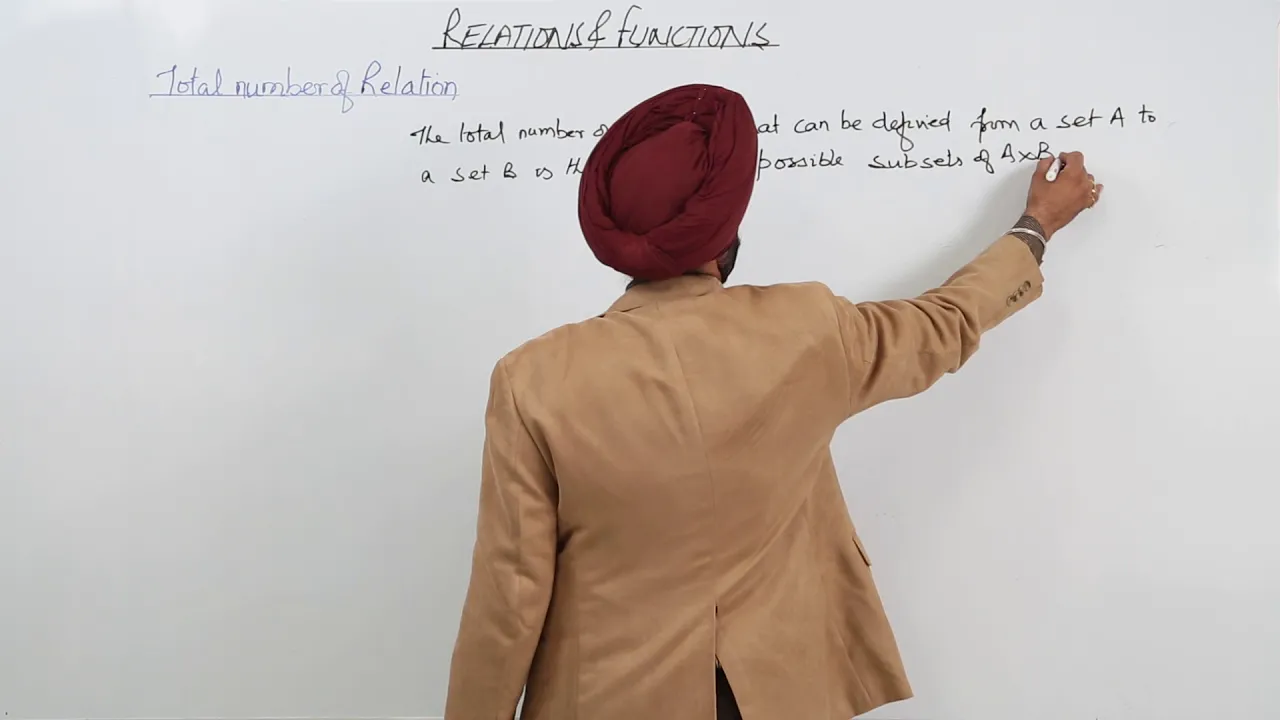 RELATIONS & FUNCTIONS
Total number of Relation
The total number o at can be defined from a set A to
a set B is th possible subsets of A×B